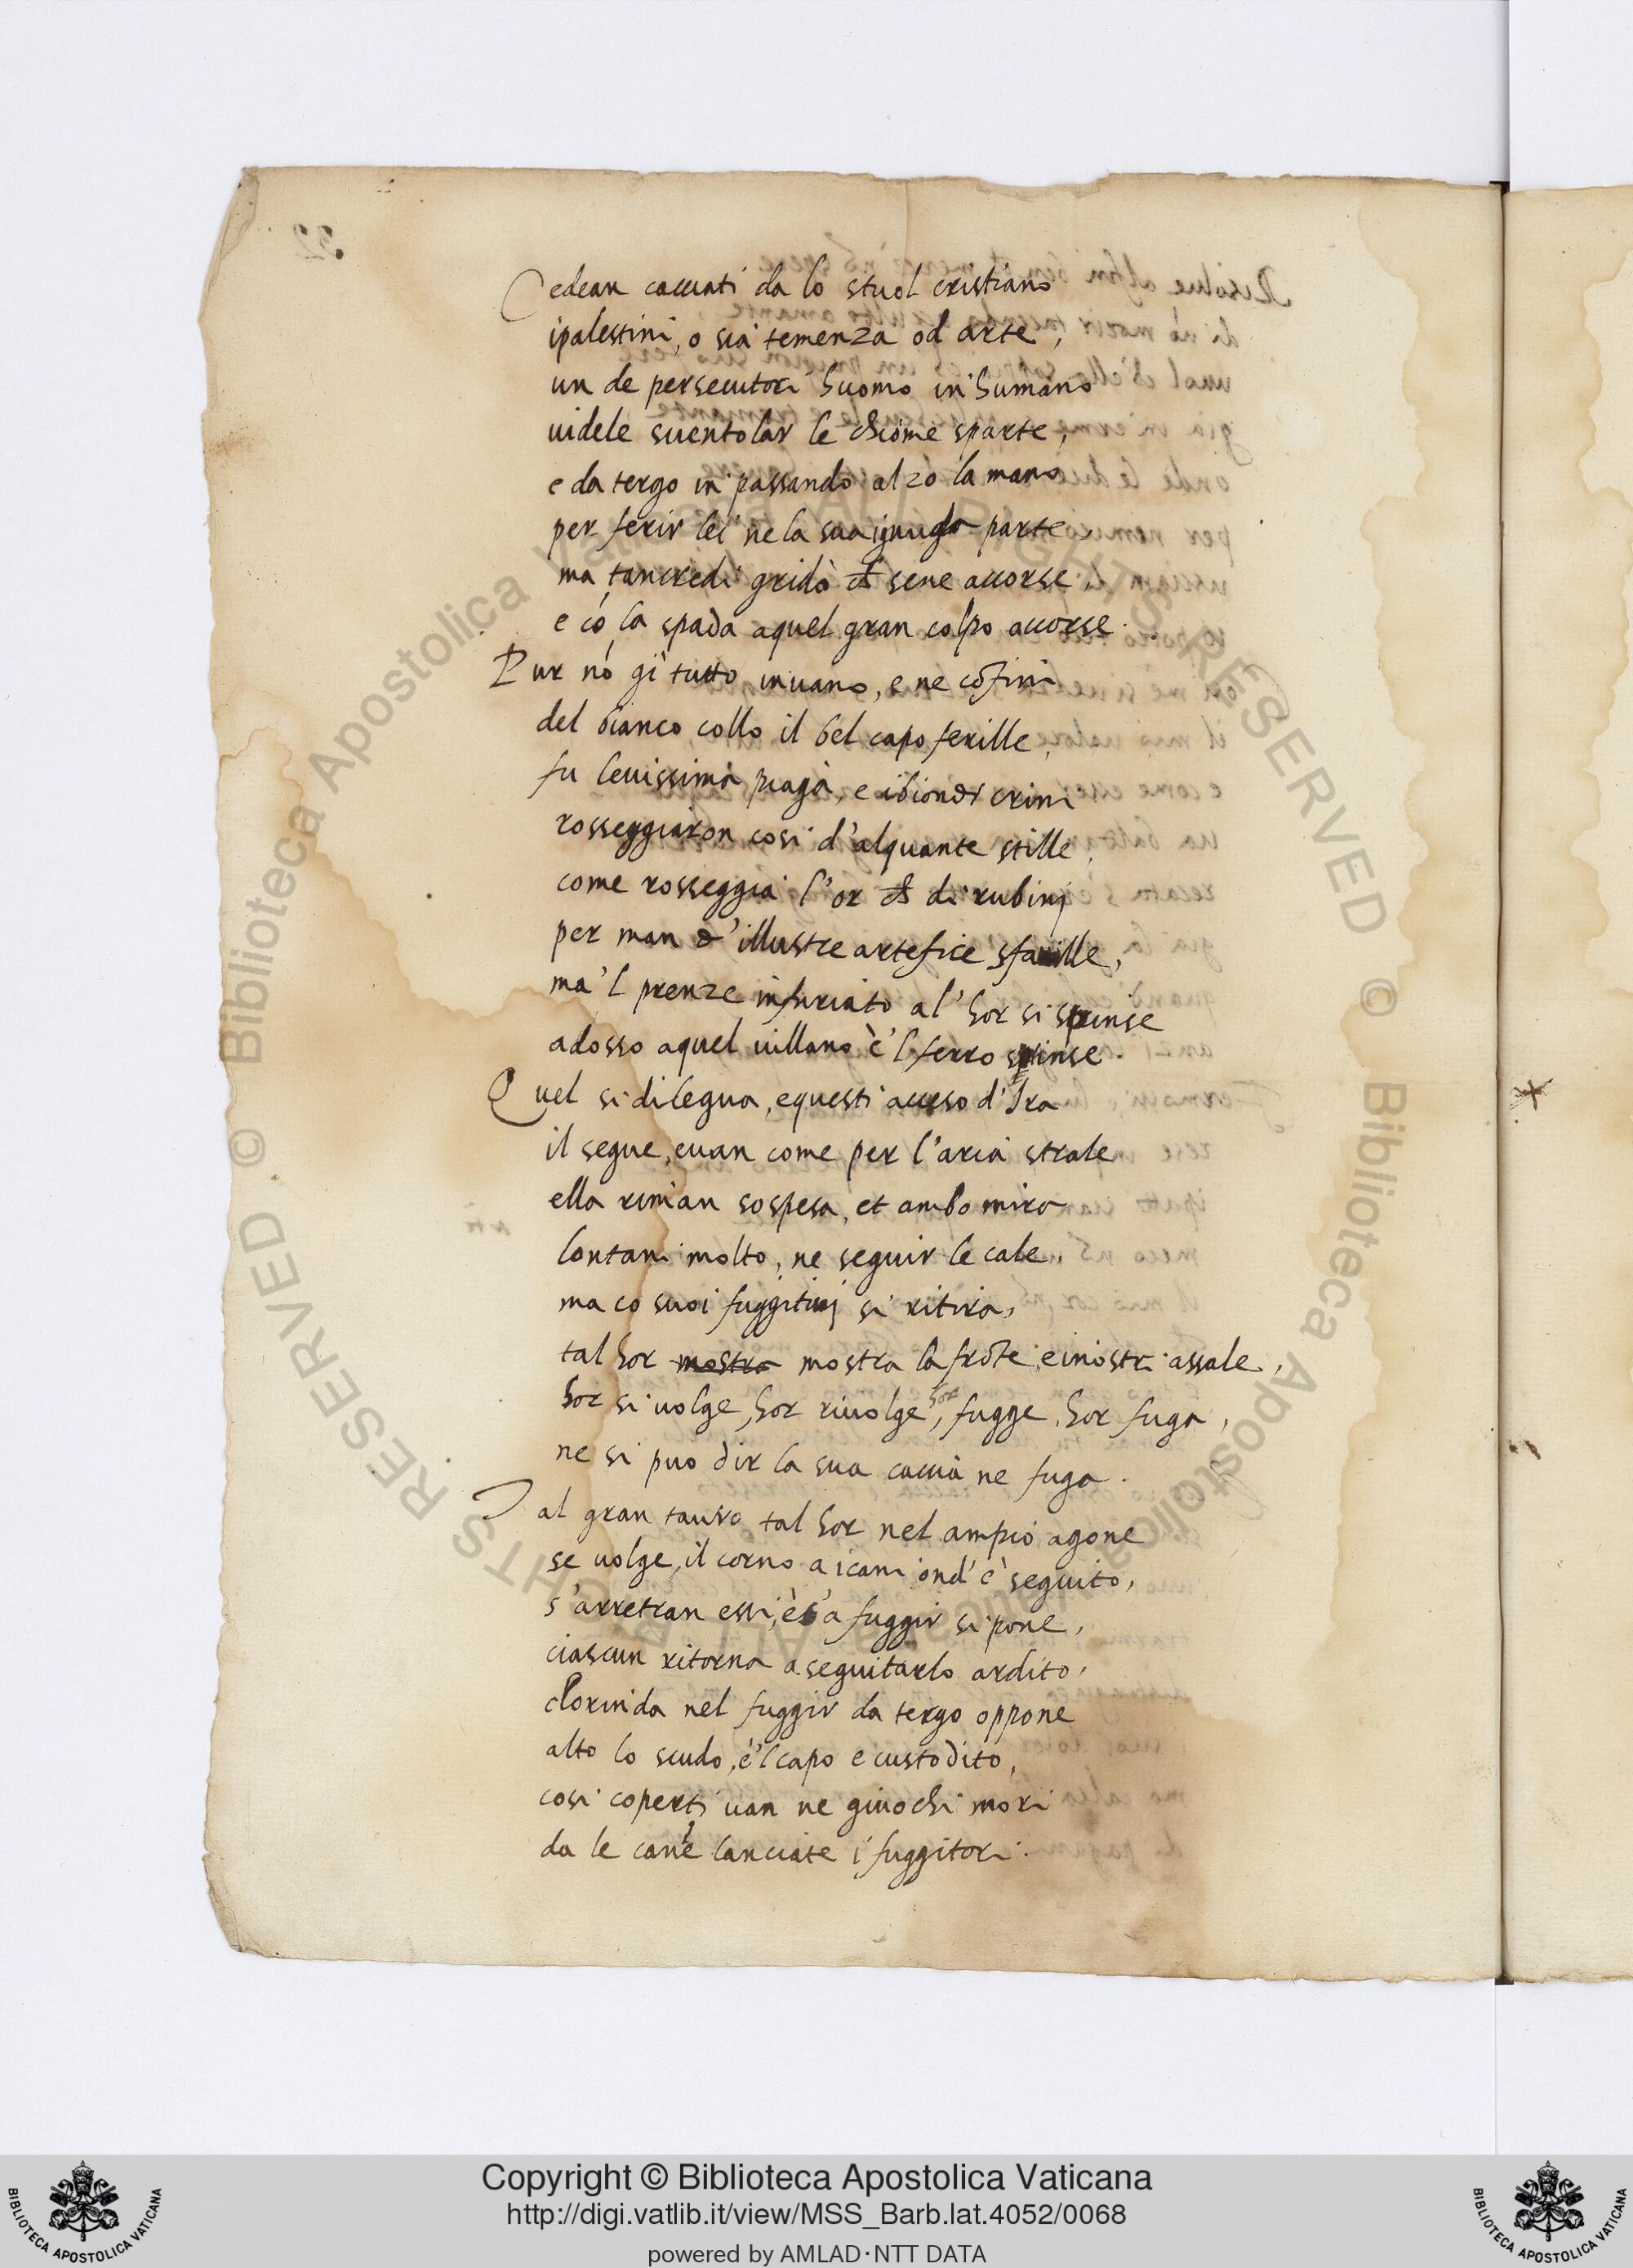 Cedean cacciati da lo stuol cristiano
i palestini, o sia temenza od arte,
un de persecutori huomo in humano
videle sventolar le chiome sparte,
e da tergo in passando alzò la mano
per ferir lei ne la sua ignuda parte
ma tancredi gridò ch sene accorse,
e cō la spada aquel gran colpo accorse.
Pur nō gì tutto invano, e ne cōfini
del bianco collo il bel capo ferille,
fu levissima piaga, e ibiondi crini
rosseggiaron cosi d'alquante stille,
come rosseggia l'or ch di rubini
per man d'illustre artefice sfaville,
ma'l prenze infuriato al'hor si spinse
adosso aquel villano è'l ferro spinse.
Quel si dilegua, equesti acceso d'Ira
il segue, evan come per l'aria strale
ella riman sospesa, et ambo mira
lontani molto, ne seguir le cale,
ma co suoi fuggitivi si ritira,
tal hor mostra mostra la frōte, e inostri assale,
hor si volge, hor rivolge, hor fugge, hor fuga,
ne si puo dir la sua caccia ne fuga.
Tal gran tauro tal hor nel ampio agone
se volge, il corno a i cani ond'è seguito,
s'arretran essi, è s'a fuggir si pone,
ciascun ritorna a seguitarlo ardito,
clorinda nel fuggir da tergo oppone
alto lo scudo, è'l capo e custodito,
cosi coperti van ne giuochi mori
da le canne lanciate i fuggitori.
Copyright © Biblioteca Apostolica Vaticana
http://digi.vatlib.it/view/MSS_Barb.lat.4052/0068
powered by AMLAD·NTT DATA
BIBLIOTECA APOSTOLICA VATICANA
BIBLIOTECA APOSTOLICA VATICANA